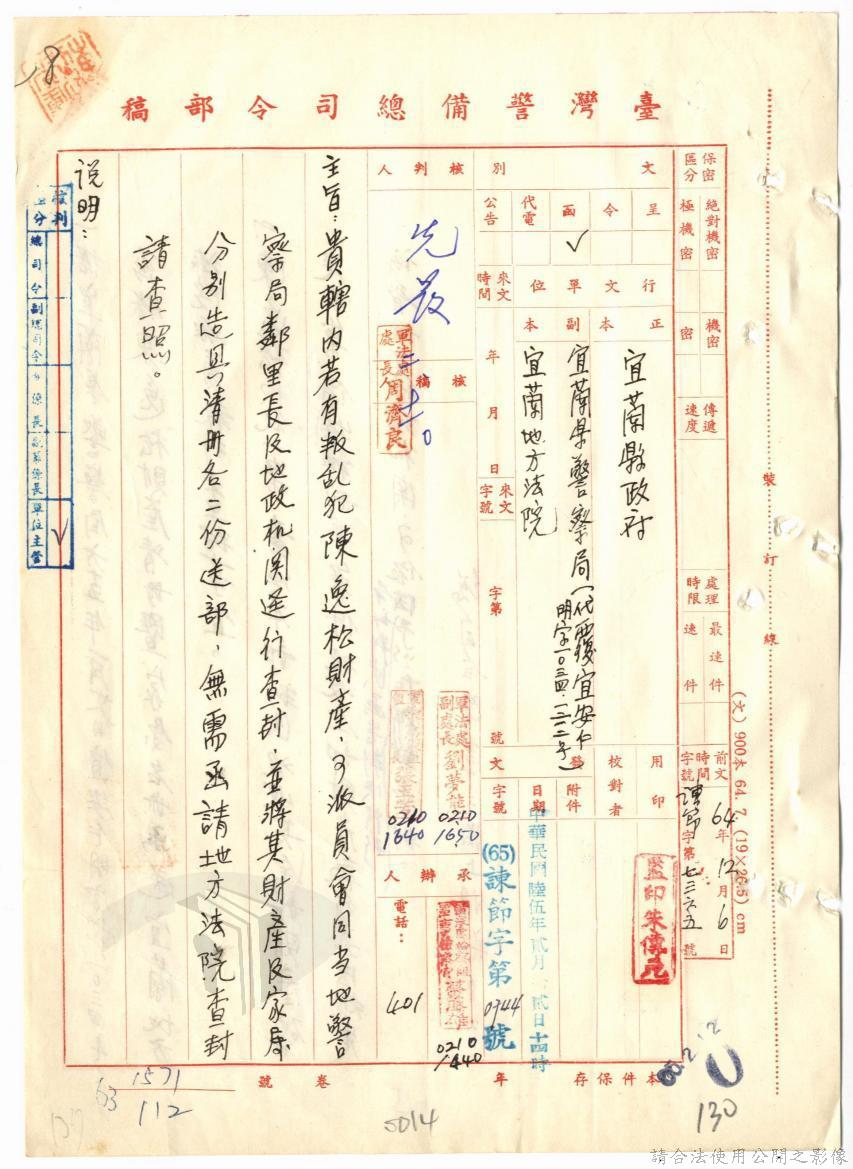 臺灣警備總司令部稿
保密區分
絕對機密
極機密
機密
密
傳遞速度
處理時限
最速件
速件
前文時間字號
64年12月6日
諫節字第七三六五號
文別
呈
令
函
✓
代電
公告
行文單位
正本
宜蘭縣政府
副本
宜蘭県警察局(代電覆宜安仁
明字一〇三四、一三一二号)
宜蘭地方法院
來文時間
年月日
來文字號
字第
號
用印
監印朱傳元
校對者
發文
附件
日期
中華民國陸伍年貳月
貳日十四時
字號
(65)諫節字第0744號
核判人
先發
核稿人
軍法處處長周濟良
軍法處副處長劉夢熊
0210
1650
0210
1640
承辦人
0210
1440
電話:
401
主旨:貴轄內若有叛乱犯陳逸松財產,可派員會同当地警
察局鄰里長及地政机関逕行查封,並將其財產及家屬
分別造具清冊各二份送部,無需函請地方法院查封
請查照。
説明:
核判區分
總司令
副總司令
單位主管
✓
裝訂線
(文) 900本 64. 7. (19×26.5) cm
本件保存
年
號卷
1571
112
63
5014
130
65.2.12
請合法使用公開之影像